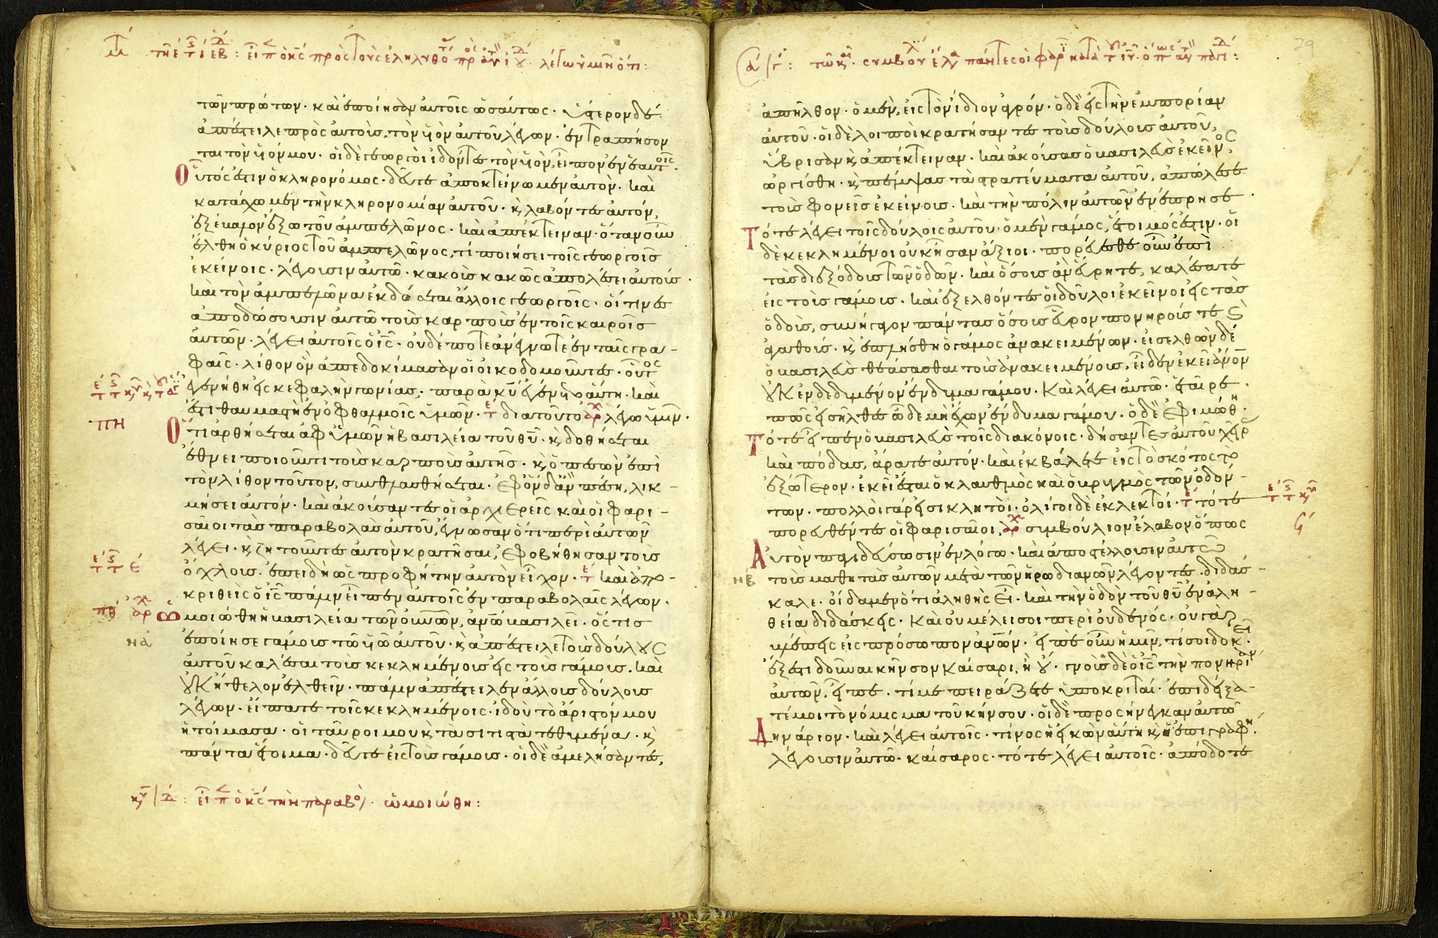 των πρώτων· καὶ ἐποίησαν αὐτοῖς ὡσαύτως· ὕστερον δὲ
ἀπέστειλε πρὸς αὐτοὺς τὸν υἱὸν αὐτοῦ λέγων· ἐντραπήσον
ται τὸν υἱόν μου· οἱ δὲ γεωργοὶ ἰδόντες τὸν υἱὸν, εἶπον ἐν ἑαυτοῖς·
Οὗτός ἐστιν ὁ κληρονόμος· δεῦτε ἀποκτείνωμεν αὐτὸν· καὶ
κατάσχωμεν τὴν κληρονομίαν αὐτοῦ· κ λαβόντες αὐτὸν,
ἐξέβαλον ἔξω τοῦ ἀμπελῶνος· καὶ ἀπέκτειναν· ὅταν οὖν
ἔλθη ὁ κύριος τοῦ ἀμπελῶνος, τί ποιήσει τοῖς γεωργοῖς
ἐκείνοις· λέγουσιν αὐτῶ· κακοὺς κακῶς ἀπολέσει αὐτούς·
καὶ τὸν ἀμπελῶνα ἐκδώσεται ἄλλοις γεωργοῖς· οἵτινες
ἀποδώσουσιν αὐτῶ τοὺς καρποὺς ἐν τοῖς καιροῖς
αὐτῶν· λέγει αὐτοῖς ὁ ις· οὐδέποτε ἀνέγνωτε ἐν ταῖς γρα-
φαῖς· λίθον ὃν ἀπεδοκίμασαν οἱ οἰκοδομοῦντες· οὗτος
ἐγενήθη εἰς κεφαλὴν γωνίας· παρὰ κυ ἐγένετο αὕτη· καὶ
ἔστι θαυμαστὴ ἐν ὀφθαλμοῖς ὑμῶν· διὰ τοῦτο λέγω ὑμῖν·
Ὅτι ἀρθήσεται ἀφ' ὑμῶν ἡ βασιλεία τοῦ θυ· κ δοθήσεται
ἔθνει ποιοῦντι τοὺς καρποὺς αὐτῆς· κ ὁ πεσὼν ἐπὶ
τὸν λίθον τοῦτον, συνθλασθήσεται· ἐφ' ὃν δ' ἂν πέση, λικ-
μήσει αὐτόν· καὶ ἀκούσαντες οἱ ἀρχιερεῖς καὶ οἱ φαρι-
σαῖοι τὰς παραβολὰς αὐτοῦ, ἔγνωσαν ὅτι περὶ αὐτῶν
λέγει· κ ζητοῦντες αὐτὸν κρατῆσαι, ἐφοβήθησαν τοὺς
ὄχλους· ἐπειδὴ ὡς προφήτην αὐτὸν εἶχον· καὶ ἀπο-
κριθεὶς ὁ ις πάλιν εἶπεν αὐτοῖς ἐν παραβολαῖς λέγων·
Ὡμοιώθη ἡ βασιλεία τῶν οὐνῶν, ανω βασιλεῖ· ὅστις
ἐποίησε γάμους τῶ υἱῶ αὐτοῦ· κ ἀπέστειλε τοὺς δούλους
αὐτοῦ καλέσαι τοὺς κεκλημένους εἰς τοὺς γάμους· καὶ
οὐκ ἤθελον ἐλθεῖν· πάλιν ἀπέστειλεν ἄλλους δούλους
λέγων· εἴπατε τοῖς κεκλημένοις· ἰδοὺ τὸ ἄριστόν μου
ἡτοίμασα· οἱ ταῦροί μου κ τὰ σιτιστὰ τεθυμένα· κ
πάντα ἕτοιμα· δεῦτε εἰς τοὺς γάμους· οἱ δὲ ἀμελήσαντες,
29
ἀπῆλθον· ὁ μὲν, εἰς τὸν ἴδιον ἀγρόν· ὁ δὲ εἰς τὴν ἐμπορίαν
αὐτοῦ· οἱ δὲ λοιποὶ κρατήσαντες τοὺς δούλους αὐτοῦ,
ὕβρισαν κ ἀπέκτειναν· καὶ ἀκούσας ὁ βασιλεὺς ἐκεῖνος
ὠργίσθη· κ πέμψας τὰ στρατεύματα αὐτοῦ, ἀπώλεσε
τοὺς φονεῖς ἐκείνους· καὶ τὴν πόλιν αὐτῶν ἐνέπρησε·
Τότε λέγει τοῖς δούλοις αὐτοῦ· ὁ μὲν γάμος, ἕτοιμός ἐστιν· οἱ
δὲ κεκλημένοι οὐκ ἦσαν ἄξιοι· πορεύεσθε οὖν ἐπὶ
τὰς διεξόδους τῶν ὁδῶν· καὶ ὅσους ἂν εὕρητε, καλέσατε
εἰς τοὺς γάμους· καὶ ἐξελθόντες οἱ δοῦλοι ἐκεῖνοι εἰς τὰς
ὁδοὺς, συνήγαγον πάντας ὅσους εὗρον πονηρούς τε κ
ἀγαθούς· κ ἐπλήσθη ὁ γάμος ἀνακειμένων· εἰσελθὼν δὲ
ὁ βασιλεὺς θεάσασθαι τοὺς ἀνακειμένους, εἶδεν ἐκεῖ ανον
οὐκ ἐνδεδυμένον ἔνδυμα γάμου· Καὶ λέγει αὐτῶ· ἑταῖρε·
πῶς εἰσῆλθες ὧδε μὴ ἔχων ἔνδυμα γάμου· ὁ δὲ ἐφιμώθη·
Τότε εἶπεν ὁ βασιλεὺς τοῖς διακόνοις· δήσαντες αὐτοῦ χεῖρ
καὶ πόδας, ἄρατε αὐτόν· καὶ ἐκβάλετε εἰς τὸ σκότος τὸ
ἐξώτερον· ἐκεῖ ἔσται ὁ κλαυθμὸς καὶ ὁ βρυγμὸς τῶν ὀδόν-
των· πολλοὶ γάρ εἰσι κλητοὶ· ὀλίγοι δὲ ἐκλεκτοί· τότε
πορευθέντες οἱ φαρισαῖοι, συμβούλιον ἔλαβον ὅπως
Αὐτὸν παγιδεύσωσιν ἐν λόγω· καὶ ἀποστέλλουσιν αὐτῶ
τοὺς μαθητὰς αὐτῶν μετὰ τῶν ἡρωδιανῶν λέγοντες· διδάσ-
καλε· οἴδαμεν ὅτι ἀληθὴς εἶ· καὶ τὴν ὁδὸν τοῦ θυ ἐν ἀλη-
θεία διδάσκεις· Καὶ οὐ μέλει σοι περὶ οὐδενός· οὐ γὰρ
βλέπεις εἰς πρόσωπον ανων· εἰπὲ οὖν ἡμῖν, τί σοι δοκεῖ·
ἔξεστι δοῦναι κῆνσον καίσαρι, ἢ οὔ· γνοὺς δὲ ὁ ις τὴν πονηρίαν
αὐτῶν, εἶπε· τί με πειράζετε ὑποκριταί· ἐπιδείξα-
τέ μοι τὸ νόμισμα τοῦ κήνσου· οἱ δὲ προσήνεγκαν αὐτῶ
Δηνάριον· καὶ λέγει αὐτοῖς· τίνος ἡ εἰκὼν αὕτη κ ἡ ἐπιγραφή·
λέγουσιν αὐτῶ· καίσαρος· τότε λέγει αὐτοῖς· ἀπόδοτε